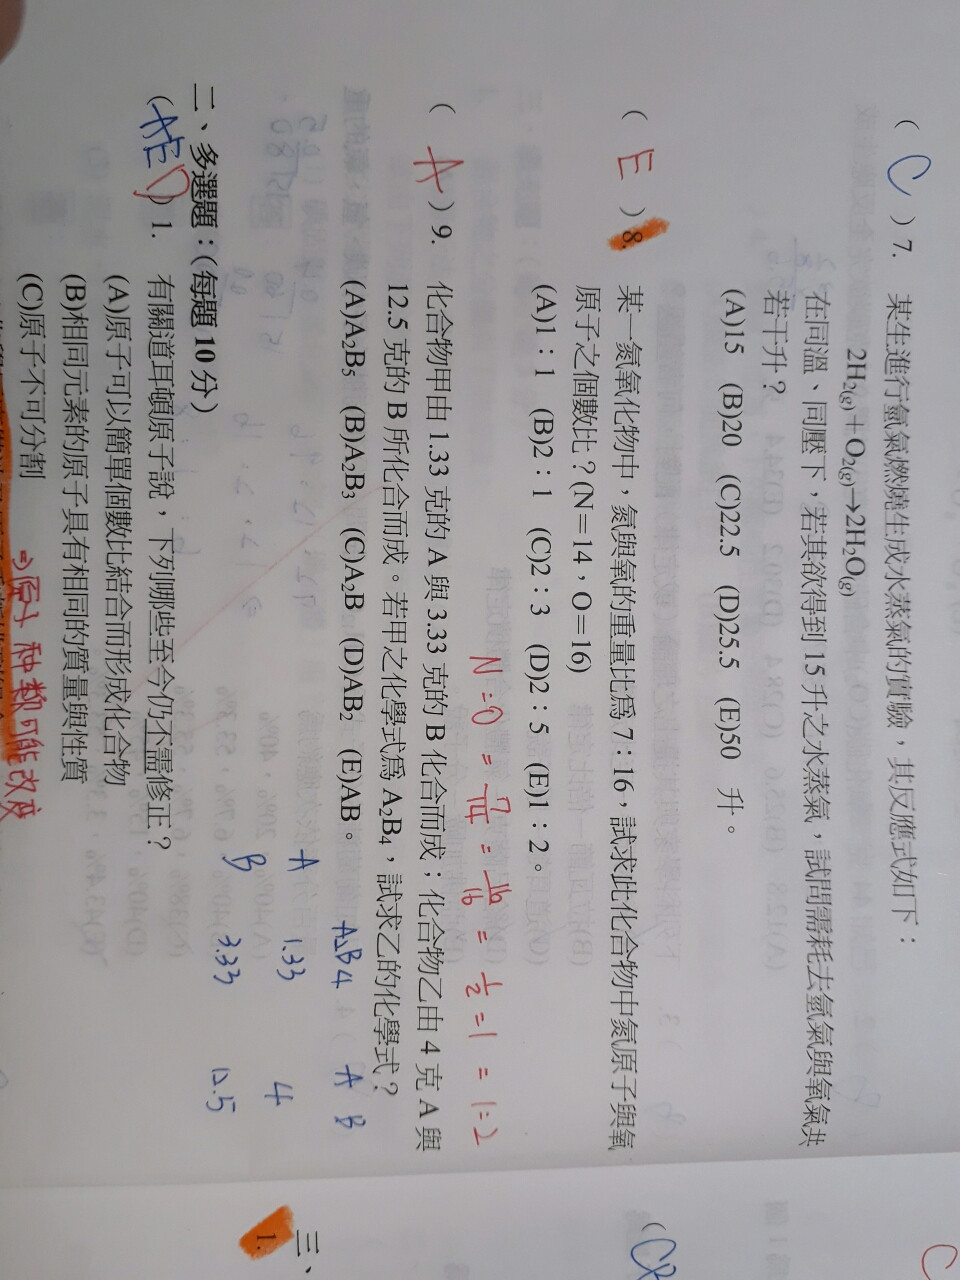 ( C ) 7. 某生進行氫氣燃燒生成水蒸氣的實驗，其反應式如下：
2H₂(g)＋O₂(g)→2H₂O(g)
在同溫、同壓下，若其欲得到 15 升之水蒸氣，試問需耗去氫氣與氧氣共
若干升？
(A)15 (B)20 (C)22.5 (D)25.5 (E)50 升。
( E ) 8. 某一氮氧化物中，氮與氧的重量比為 7：16，試求此化合物中氮原子與氧
原子之個數比？(N＝14，O＝16)
(A)1：1 (B)2：1 (C)2：3 (D)2：5 (E)1：2。
N:O = 7/14 = 16/16 = 1/2 = 1 = 1:2
( A ) 9. 化合物甲由 1.33 克的 A 與 3.33 克的 B 化合而成；化合物乙由 4 克 A 與
12.5 克的 B 所化合而成。若甲之化學式為 A₂B₄，試求乙的化學式？
(A)A₂B₅ (B)A₂B₃ (C)A₂B (D)AB₂ (E)AB。
A₂B4 A B
A 1.33 4
B 3.33 12.5
二、多選題：(每題 10 分)
( AED ) 1. 有關道耳頓原子說，下列哪些至今仍不需修正？
(A)原子可以簡單個數比結合而形成化合物
(B)相同元素的原子具有相同的質量與性質
(C)原子不可分割
種類可能改變
三、
1.